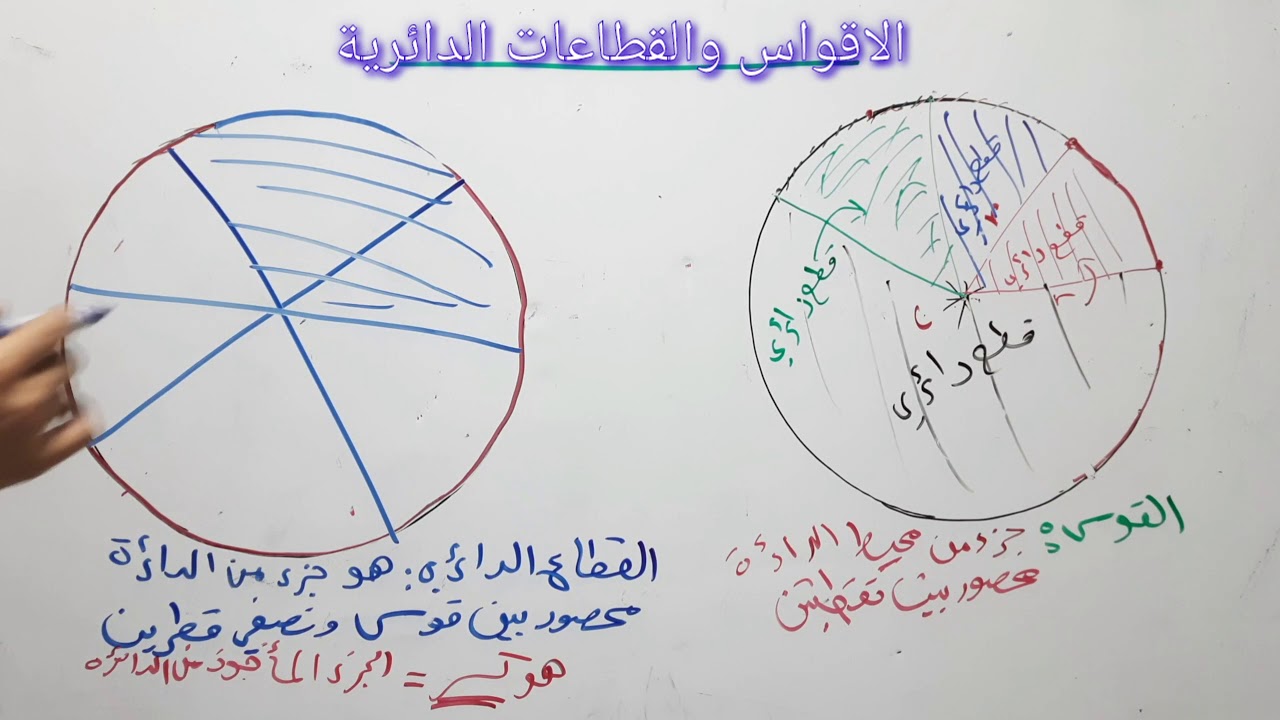 الاقواس والقطاعات الدائرية
قطع دائري
قطع دائري
قطع دائري
قطع دائري
القوس: جزء من محيط الدائرة
محصور بين نقطتين
القطاع الدائري: هو جزء من الدائرة
محصور بين قوس ونصفي قطرين
هو كسر = الجزء المأخوذ من الدائرة